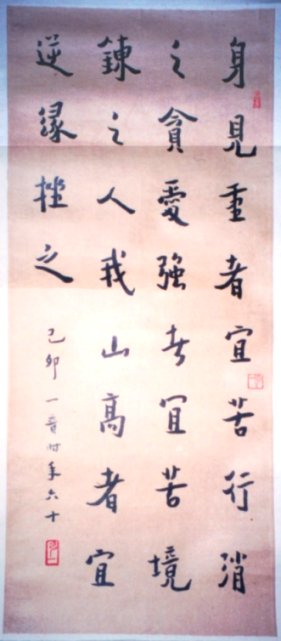 身見重者宜苦行消
之貪愛強者宜苦境
鍊之人我山高者宜
逆緣挫之
己卯一音時年六十